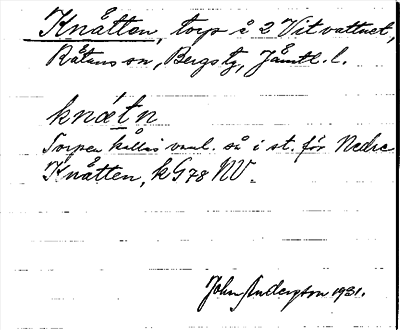 Knåtten, torp å 2 Vitvattnet,
Råtans sn, Bergs tg, Jämtl. l.
knǽtn
Torpen kallas vanl. så i st. för Nedre
Knåtten, kG78 NV.
John Anderson 1931.